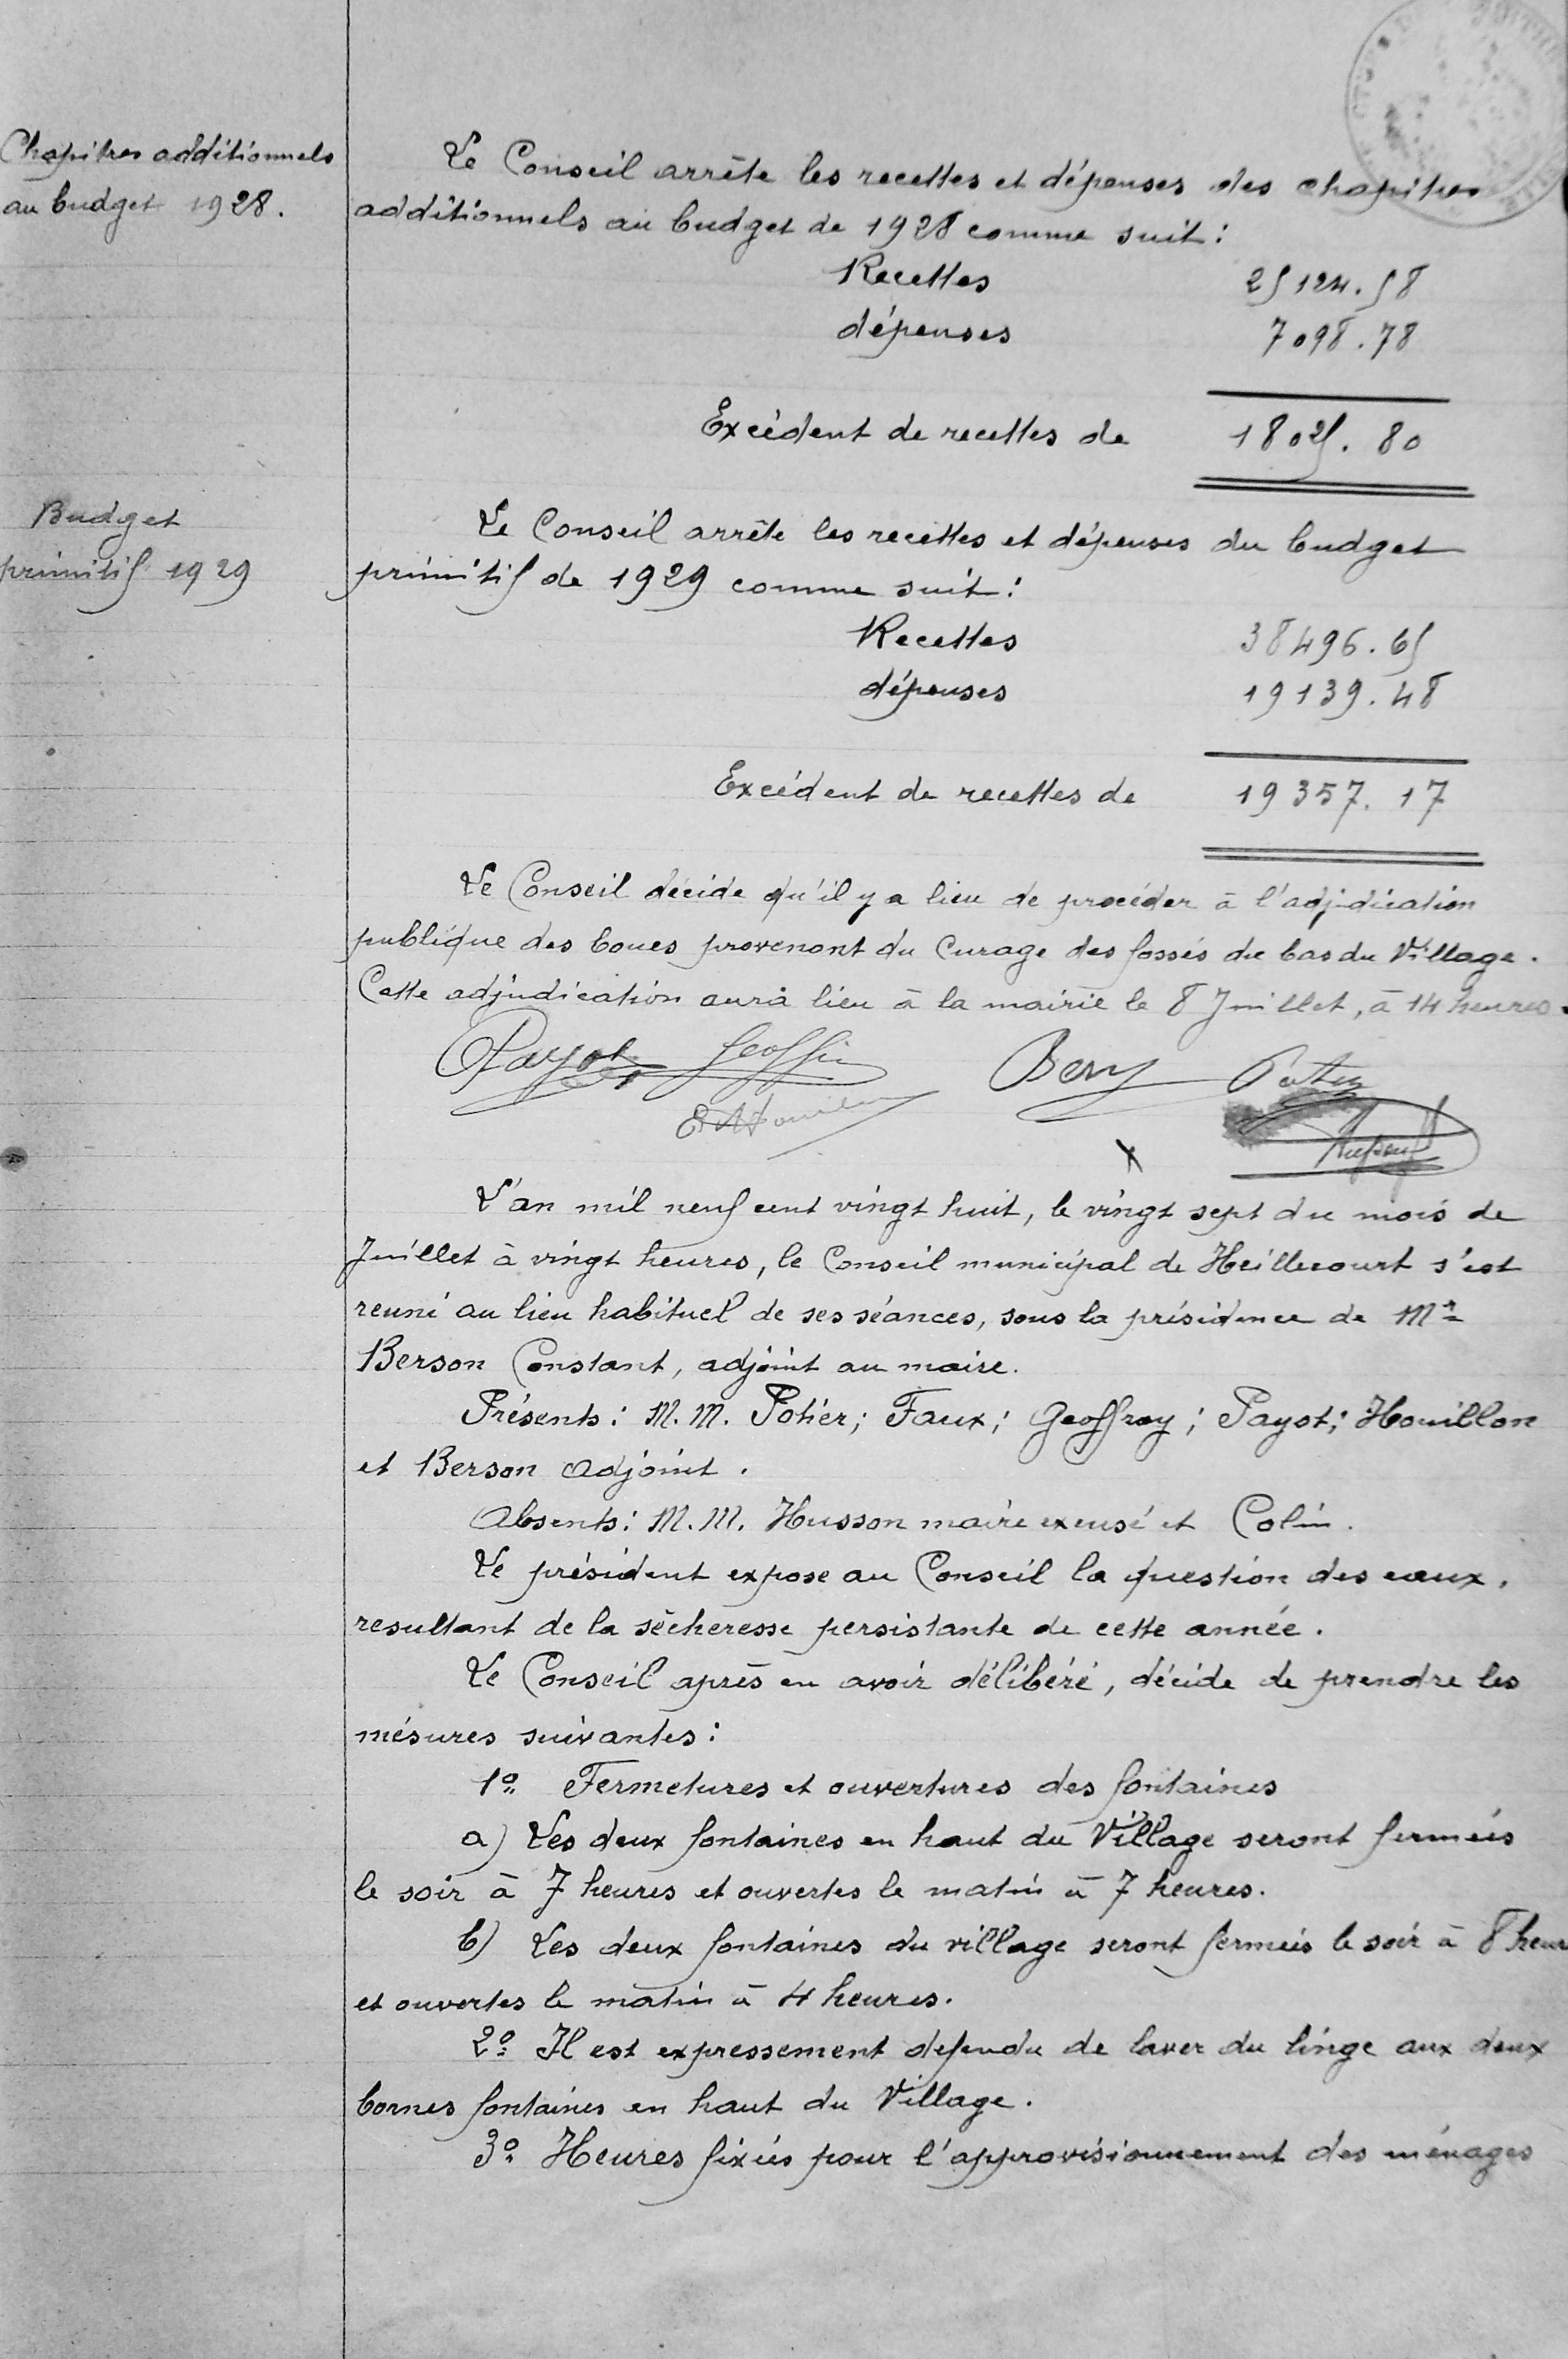 Chapitres additionnels
au budget 1928.
Le Conseil arrête les recettes et dépenses des chapitres
additionnels au budget de 1928 comme suit :
Recettes 25124.58
dépenses 7098.78
Excèdent de recettes de 18025.80
Budget
primitif 1929
Le Conseil arrête les recettes et dépenses du budget
primitif de 1929 comme suit :
Recettes 38496.65
dépenses 19139.48
Excédent de recettes de 19357.17
Le Conseil décide qu'il y a lieu de procéder à l'adjudication
publique des boues provenont du Curage des fossés du bas du Village.
Cette adjudication aura lieu à la mairie le 8 Juillet, à 14 heures.
Payot
L'an mil neuf cent vingt huit, le vingt sept du mois de
Juillet à vingt heures, le Conseil municipal de Heillecourt s'est
reuni au lieu habituel de ses séances, sous la présidence de Mr
Berson Constant, adjoint au maire.
Présents : M.M. Potier ; Faux ; Geoffroy ; Payot ; Houillon
et Berson adjoint.
Absents : M.M. Husson maire excusé et Colin.
Le président expose au Conseil la question des eaux,
resultant de la sècheresse persistante de cette année.
Le Conseil après en avoir délibéré, décide de prendre les
mésures suivantes :
1o Fermetures et ouvertures des fontaines
a) Les deux fontaines en haut du Village seront fermées
le soir à 7 heures et ouvertes le matin à 7 heures.
b) Les deux fontaines du village seront fermées le soir à 8 heur
et ouvertes le matin à 4 heures.
2o Il est expressement defendu de laver du linge aux deux
bornes fontaines en haut du Village.
3o Heures fixées pour l'approvisionnement des ménages